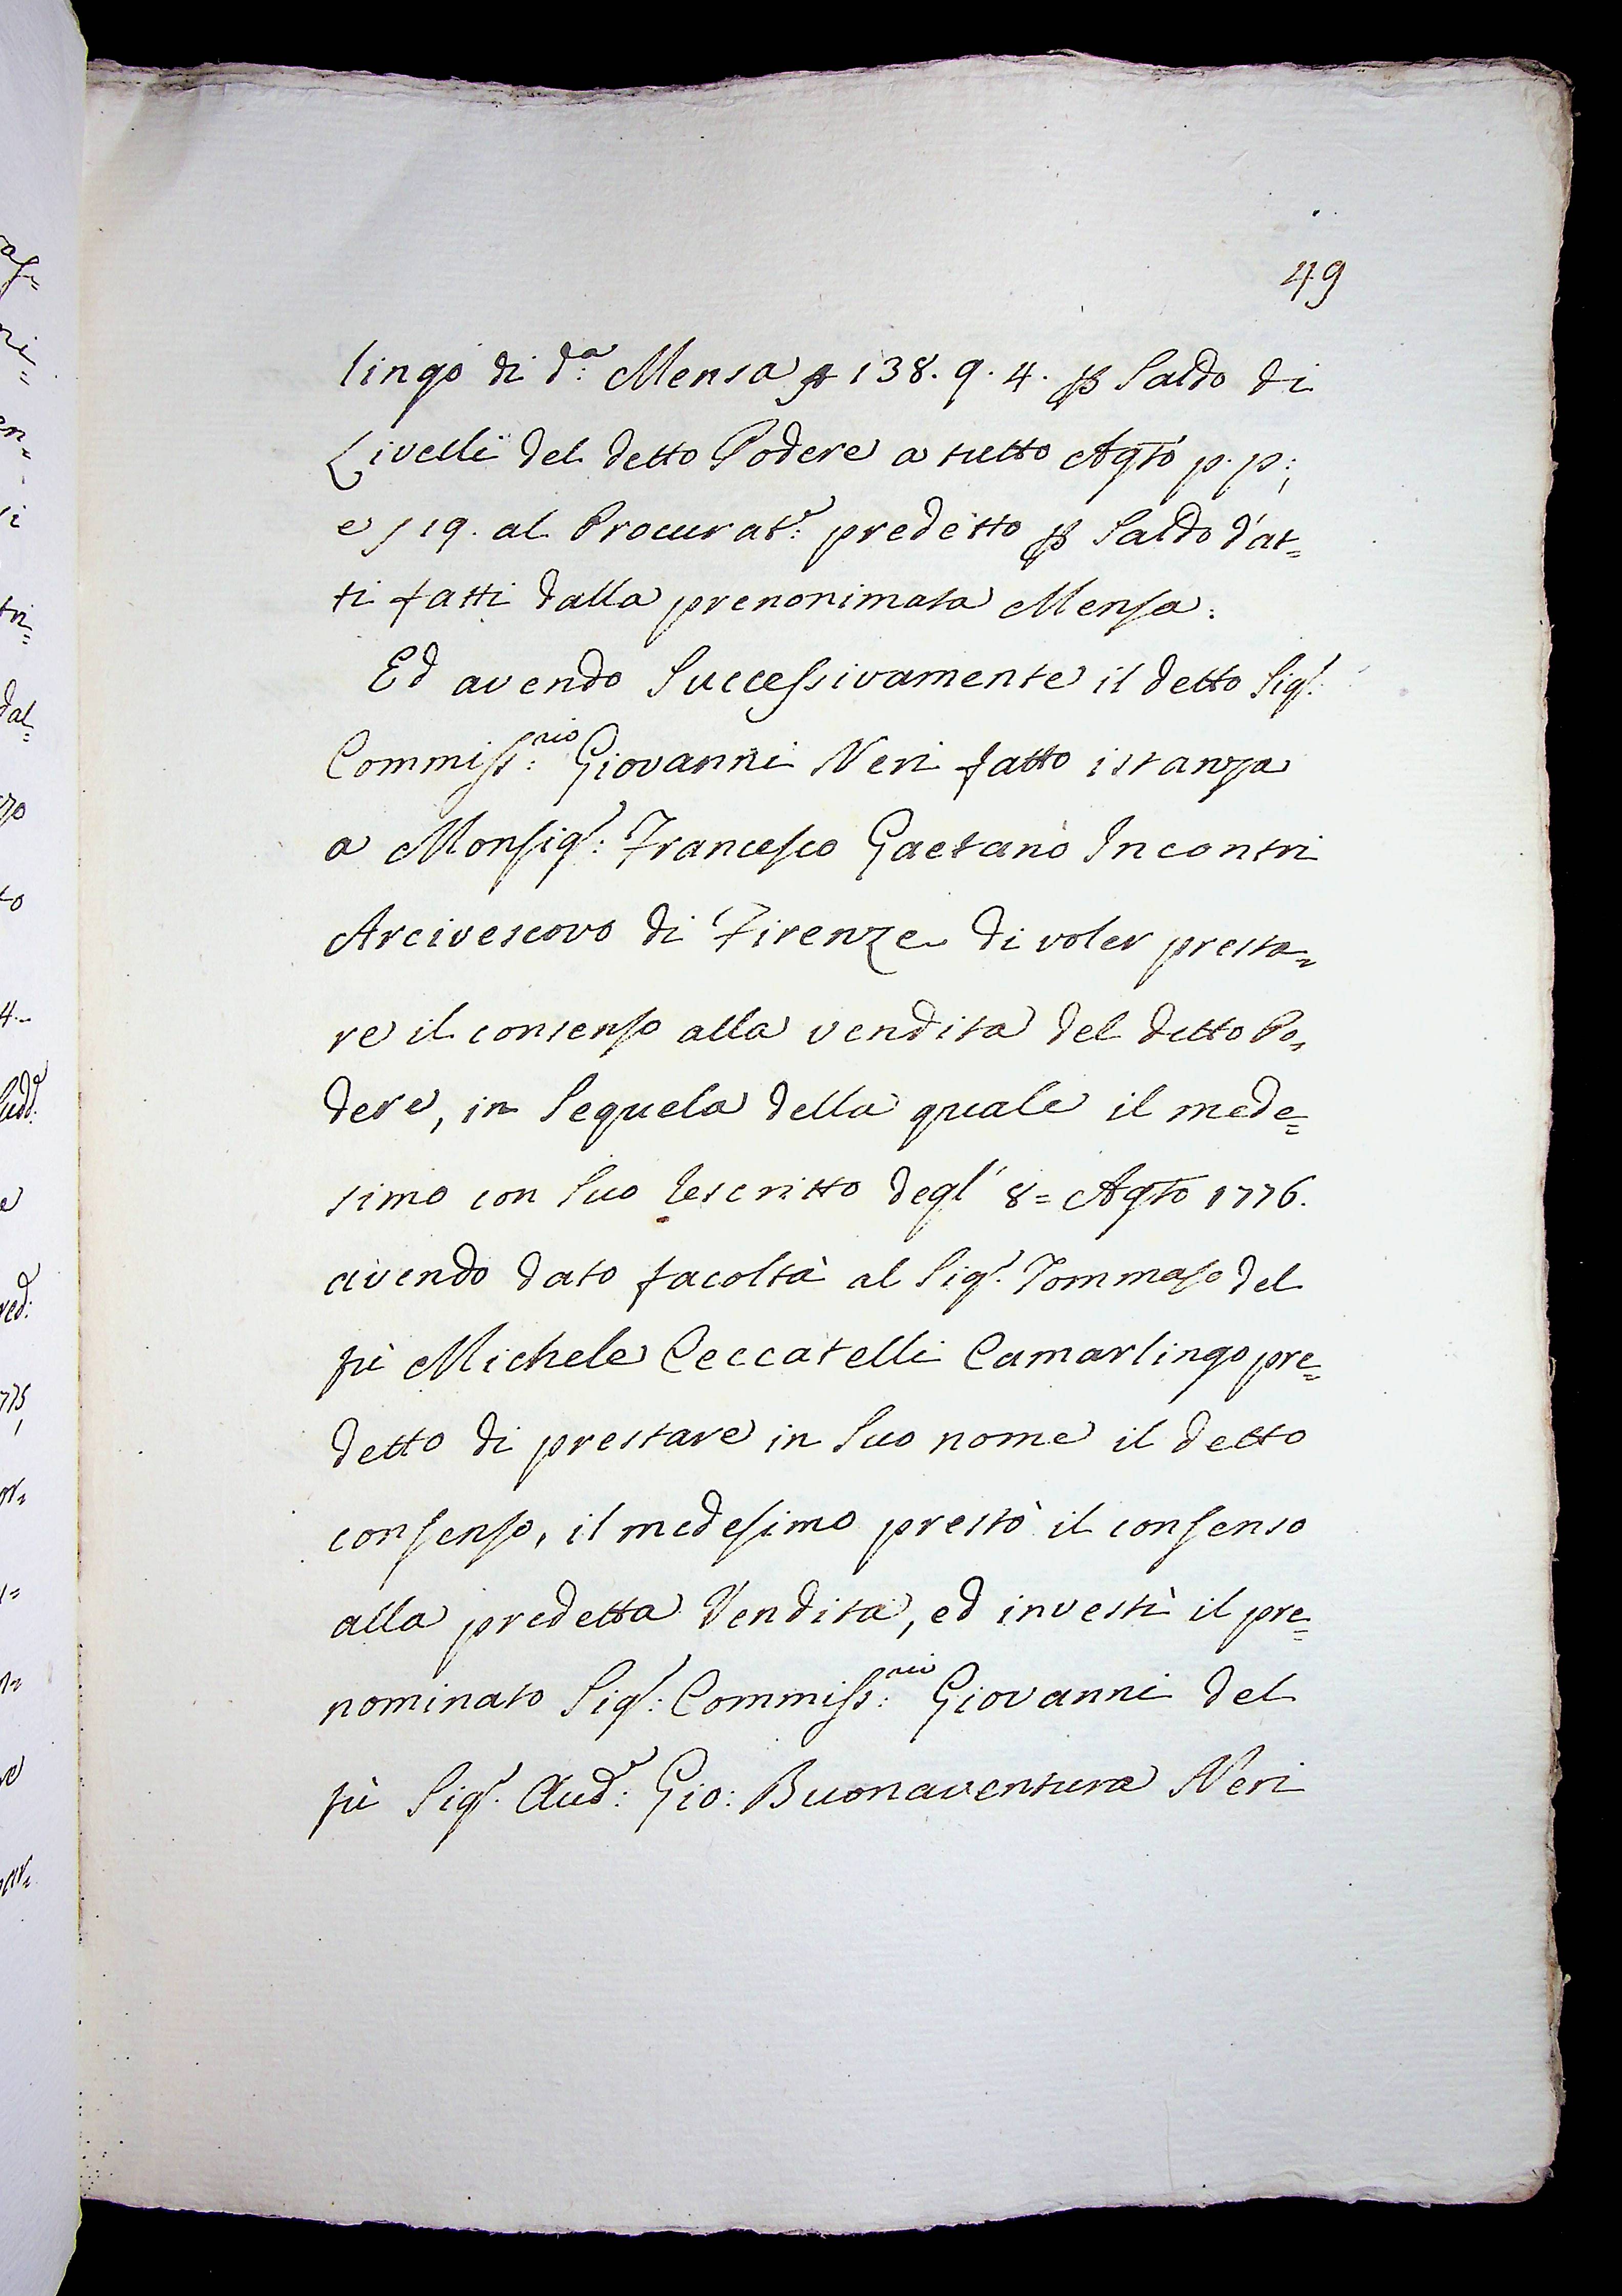 49
lingo di d:ª Mensa 138. 9. 4. ꝑ Saldo di
Livelli del detto Podere a tutto Agto p. p;
e ƒ 19. al Procurat:ʳ predetto ꝑ Saldo d'at=
ti fatti dalla prenonimata Mensa.
Ed avendo Successivamente il detto Sigʳ:
Commiss:ʳⁱᵒ Giovanni Neri fatto istanza
a Monsigʳ: Francesco Gaetano Incontri
Arcivescovo di Firenze di voler presta=
re il consenso alla vendita del detto Po=
dere, in Sequela della quale il mede=
simo con Suo Rescritto degl' 8= Agto 1776.
avendo dato facoltà al Sigʳ. Tommaso del
fù Michele Ceccatelli Camarlingo pre=
detto di prestare in Suo nome il detto
consenso, il medesimo prestò il consenso
alla predetta Vendita, ed investì il pre=
nominato Sigʳ: Commiss:ʳⁱᵒ Giovanni del
fù Sigʳ. Aud:ʳ Gio: Buonaventura Neri